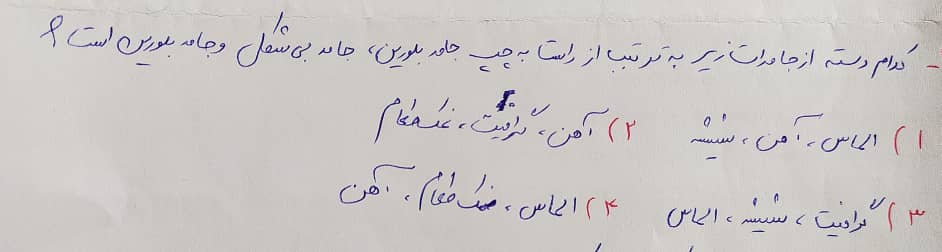 - کدام دسته از جامدات زیر به ترتیب از راست به چپ جامد بلورین، جامد بی شکل و جامد بلورین است؟
۱) الماس، آهن، شیشه ۲) آهن، گرافیت، نمک طعام
۳) گرافیت، شیشه، الماس ۴) الماس، نمک طعام، آهن